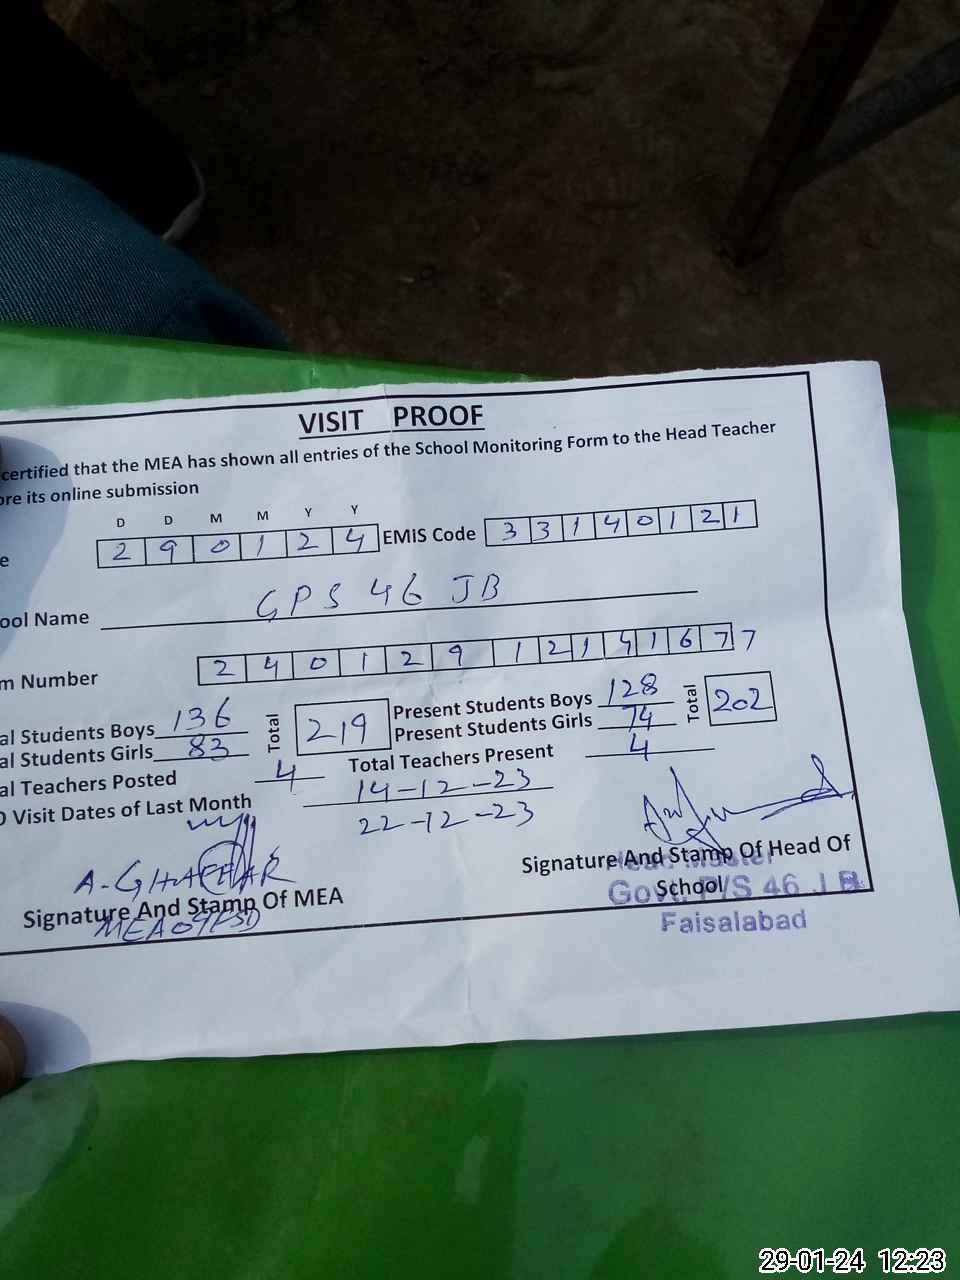 VISIT PROOF
certified that the MEA has shown all entries of the School Monitoring Form to the Head Teacher
ore its online submission
D D M M Y Y
e 2 9 0 1 2 4 EMIS Code 3 3 1 4 0 1 2 1
ool Name GPS 46 JB
m Number 2 4 0 1 2 9 1 2 1 4 1 6 7 7
al Students Boys 136 Total 219 Present Students Boys 128 Total 202
al Students Girls 83 Present Students Girls 74
al Teachers Posted 4 Total Teachers Present 4
O Visit Dates of Last Month 14-12-23
22-12-23
A-GHAFFAR
Signature And Stamp Of MEA
Signature And Stamp Of Head Of
School
Head Master
Govt. P/S 46 J B
Faisalabad
29-01-24 12:23